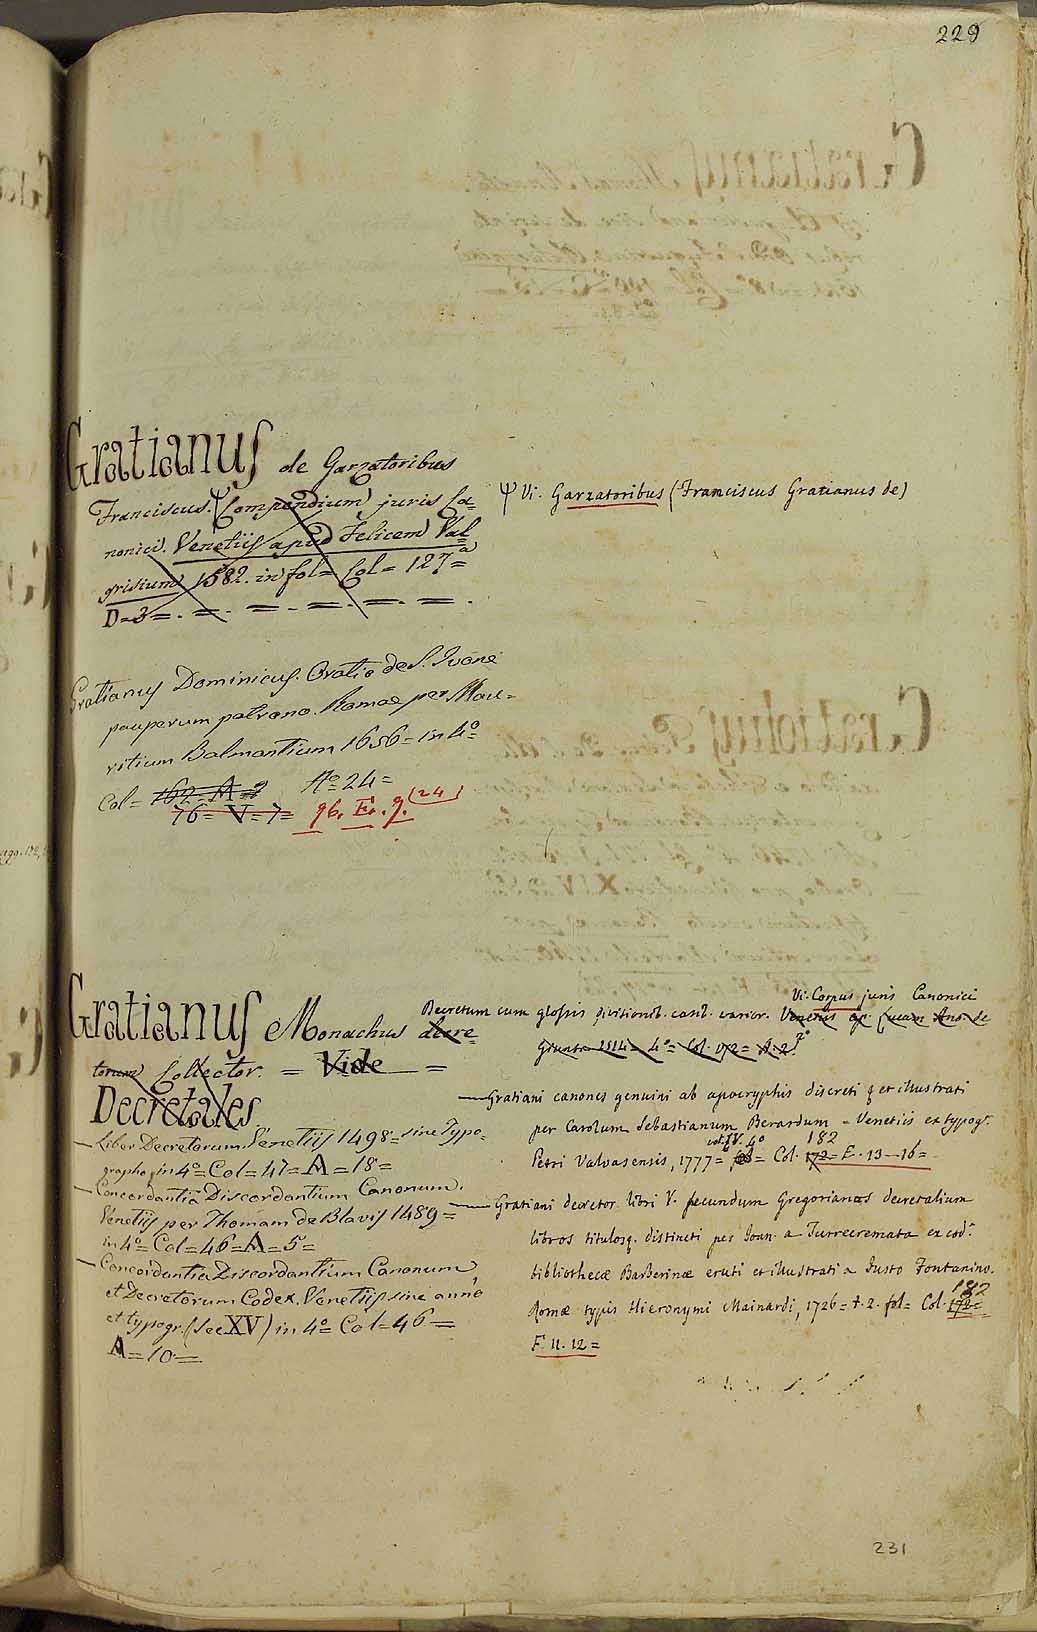 229
Gratianus de Garzatoribus
Franciscus. Ψ Compendium juris Ca-
nonici. Venetiis apud Felicem Val-
grisium 1582. in fol= Col= 127=
D=3=. =. =. =. =. =.
Ψ Vi. Garzatoribus (Franciscus Gratianus de)
Gratianus Dominicus. Oratio de S. Ivone
pauperum patrono. Romae per Mau=
ritium Balmontium 1656= in 4º=
Col= 162=A=2 Aº 24=
76=V=7= 96. E. 9. (24)
Gratianus Monachus decre-
torum Collector. = Vide =
Decretales
— Liber Decretorum Venetiis 1498= sine Typo=
grapho in 4º= Col= 47= A=18=
— Concordantia Discordantium Canonum.
Venetiis per Thomam de Blavis 1489=
in 4º= Col=46=A=5=
— Concordantia Discordantium Canonum
et Decretorum Codex. Venetiis sine anno
et typogr. (Sec XV) in 4º= Col=46=
A=10=
Vi. Corpus juris Canonici
Decretum cum glossis divisionib. casib. varior. Venetiis
Giunta 1514= 4º= Col. 172= A. 2.
— Gratiani canones genuini ab apocryphis discreti et illustrati
per Carolum Sebastianum Berardum = Venetiis ex typogr.
vol. IV. 4º 182
Petri Valvasensis, 1777= fol= Col. 172=E. 13—16=
— Gratiani decretor. libri V. secundum Gregorianos decretalium
libros titulosq. distincti per Joan. a Turrecremata ex cod.
bibliothecæ Barberinæ eruti et illustrati a Justo Fontanino.
182
Romæ typis Hieronymi Mainardi, 1726= t. 2. fol= Col. 172=
F. 11. 12=
231